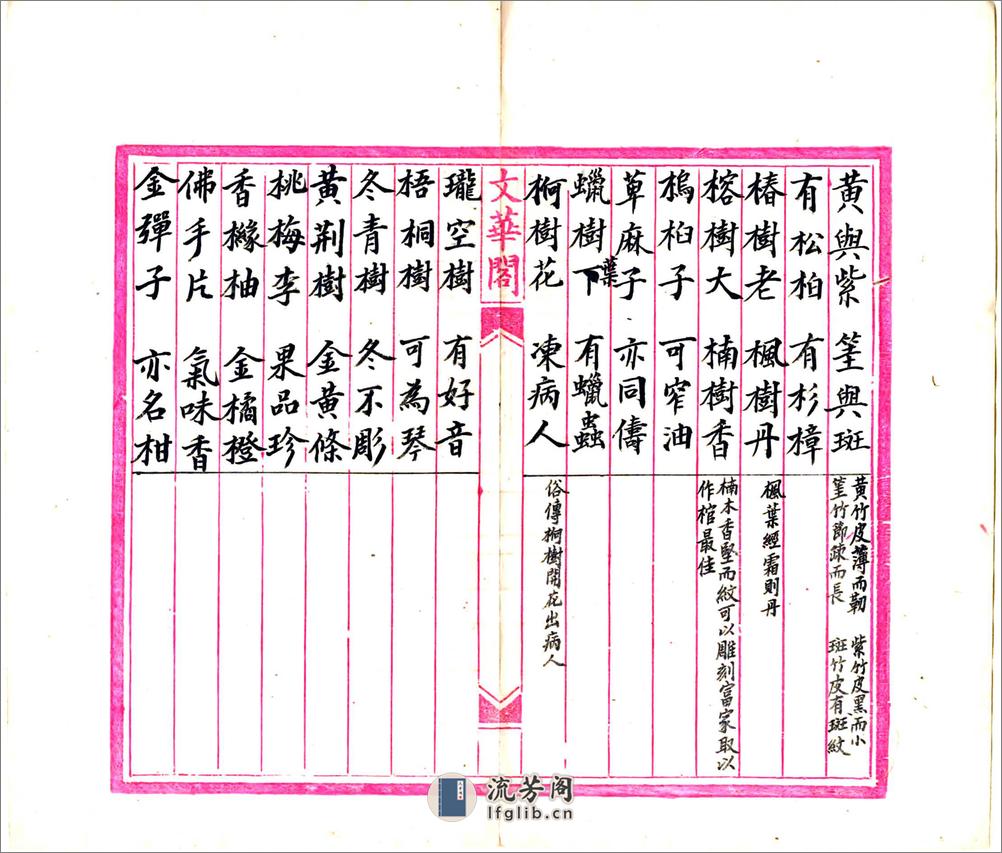 黃與紫 筀與斑
黃竹皮薄而韌 紫竹皮黑而小
筀竹節疎而長 斑竹皮有斑紋
有松柏 有杉樟
椿樹老 楓樹丹
楓葉經霜則丹
榕樹大 楠樹香
楠木香堅而紋可以雕刻富家取以
作棺最佳
桕子 可窄油
萆麻子 亦同儔
蠟樹葉下 有蠟蟲
樹花 凍病人
俗傳樹開花出病人
文華閣
瓏空樹 有好音
梧桐樹 可為琴
冬青樹 冬不彫
黃荆樹 金黃條
桃梅李 果品珍
香櫞柚 金橘橙
佛手片 氣味香
金彈子 亦名柑
流芳阁
lfglib.cn